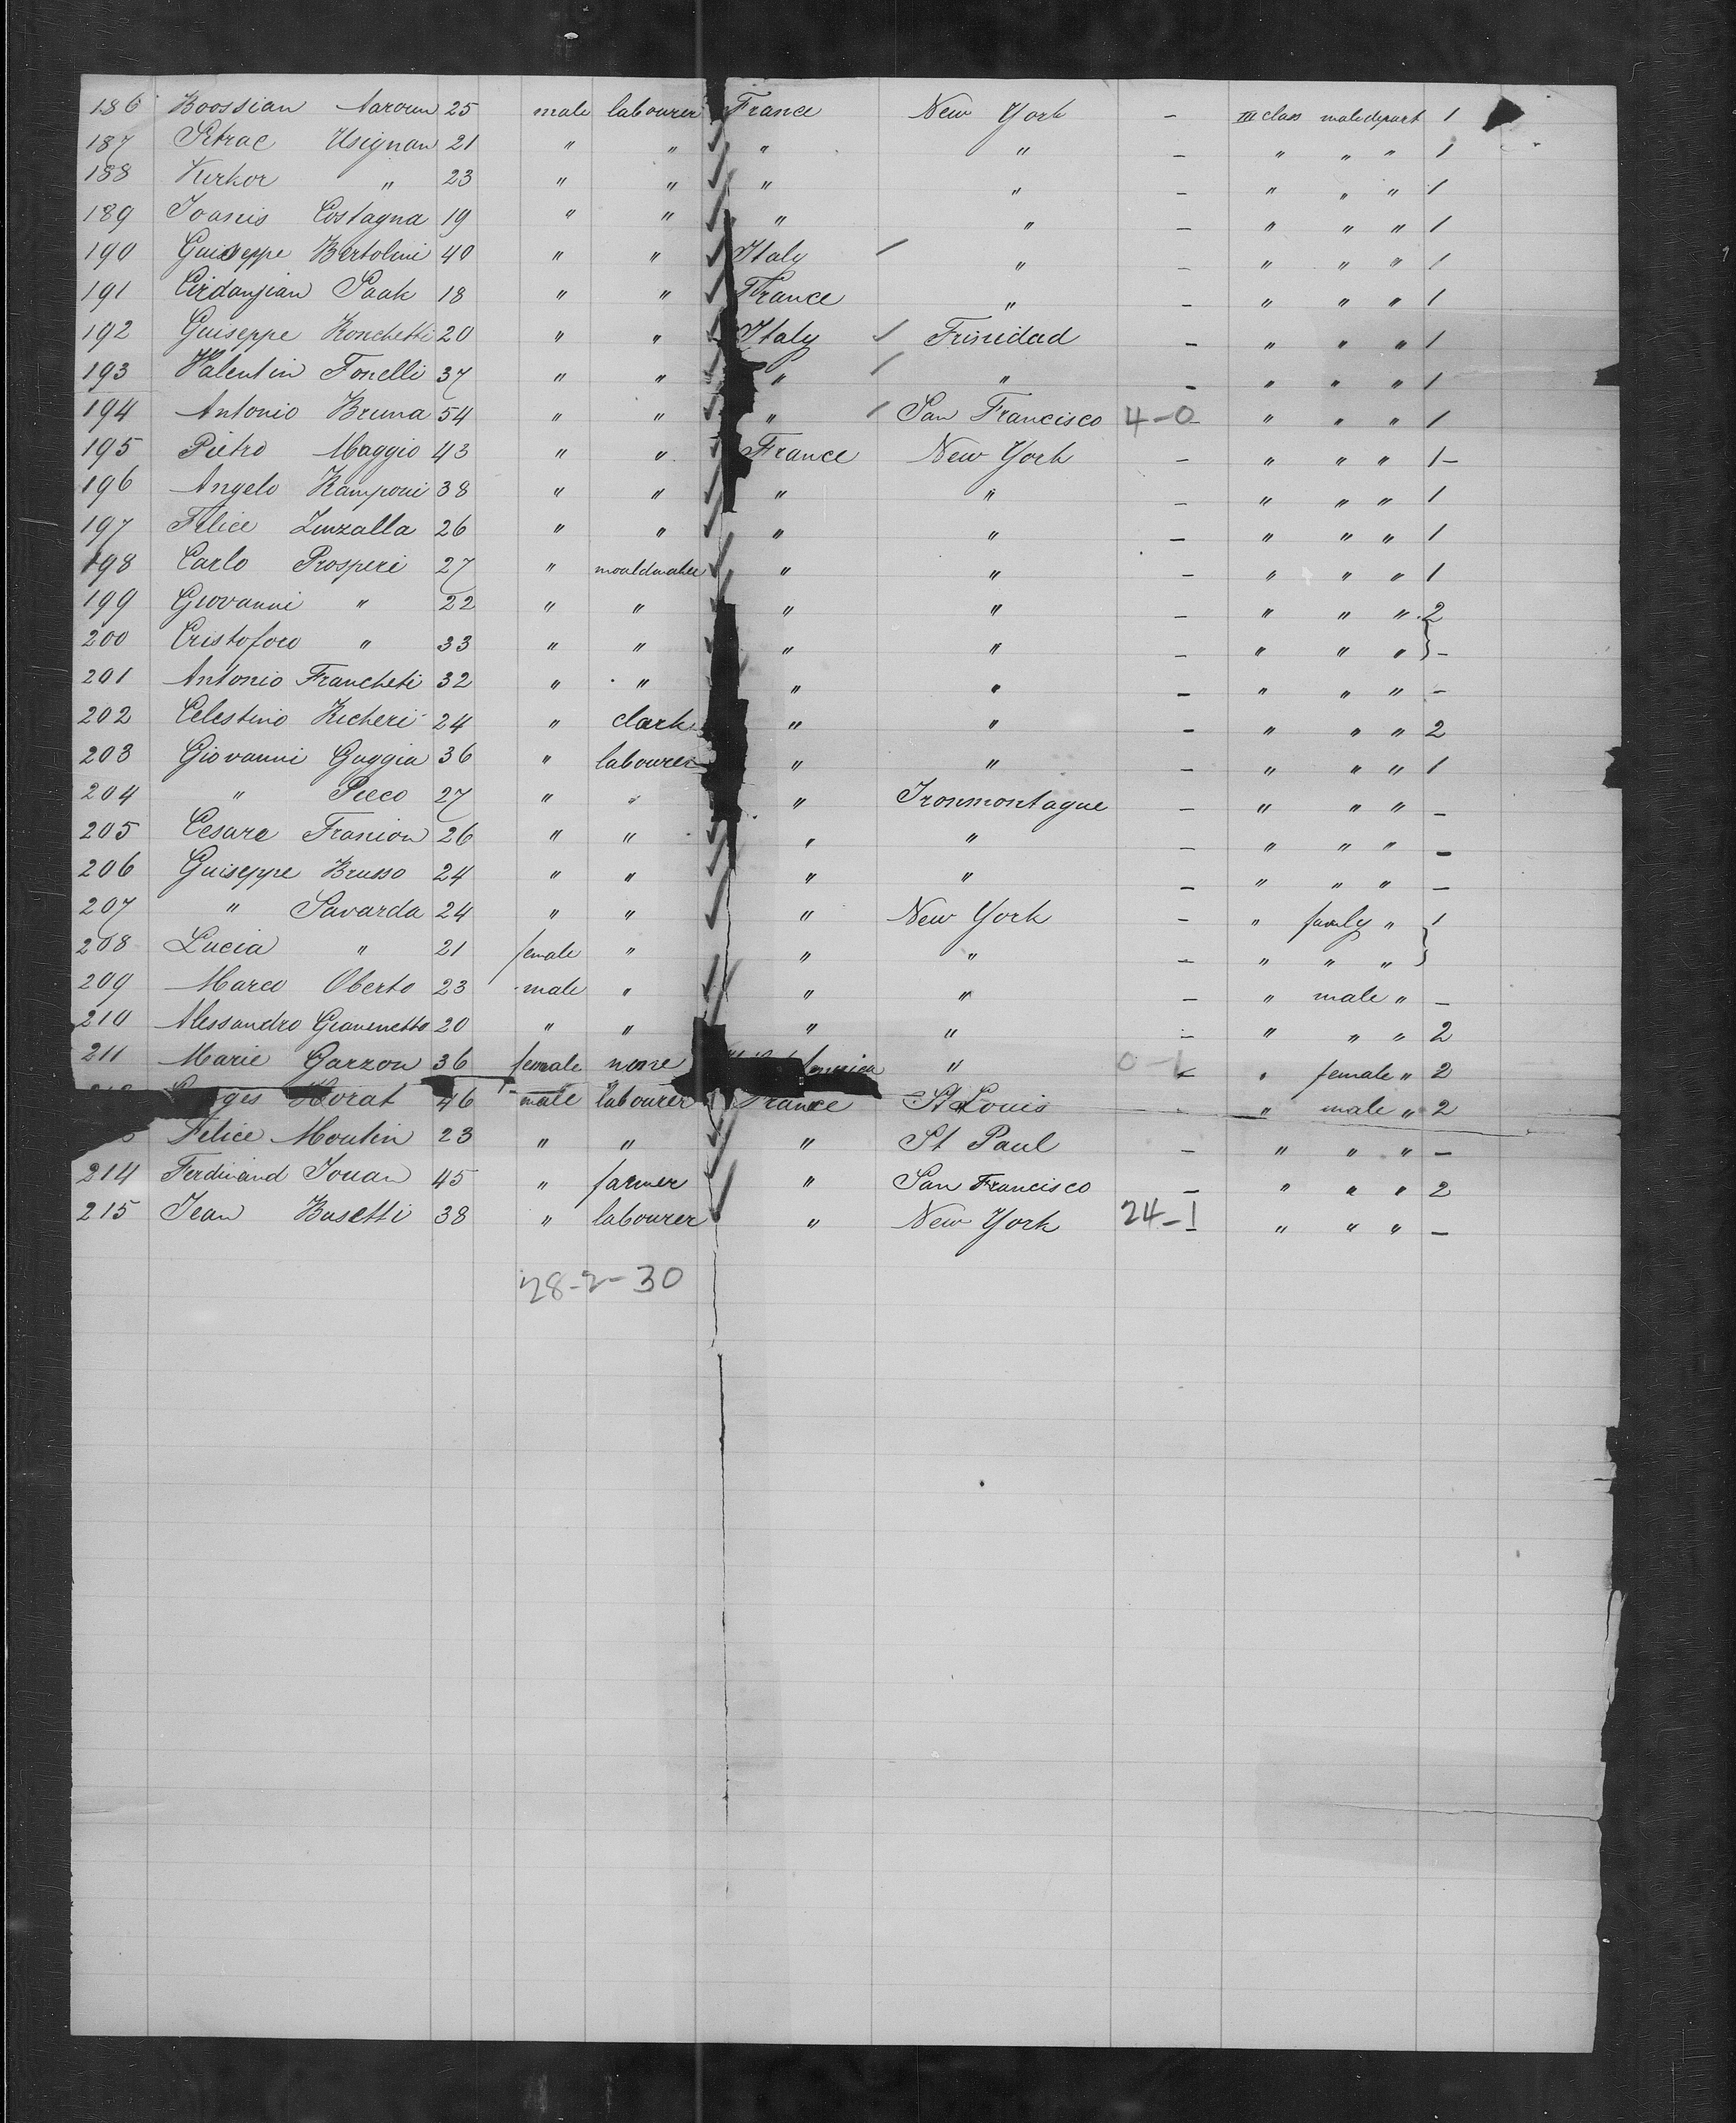 186 Boossian Aaroun 25 male labourer France New York - III class male depart 1
187 Petrac Usignan 21 " " " " - " " " 1
188 Kerkor " 23 " " " " - " " " 1
189 Joanis Costagna 19 " " " " - " " " 1
190 Guiseppe Bertolini 40 " " Italy " - " " " 1
191 Cirdanjian Saak 18 " " France " - " " " 1
192 Guiseppe Ronchetti 20 " " Italy Trinidad - " " " 1
193 Valentin Tonelli 37 " " " " - " " " 1
194 Antonio Bruna 54 " " " San Francisco 4-0 " " " 1
195 Pietro Maggio 43 " " France New York - " " " 1-
196 Angelo Ramponi 38 " " " " - " " " 1
197 Felice Zinzalla 26 " " " " - " " " 1
198 Carlo Prosperi 27 " mouldmaker " " - " " " 1
199 Giovanni " 22 " " " " - " " " 2
200 Cristoforo " 33 " " " " - " " " -
201 Antonio Francheti 32 " " " " - " " " -
202 Celestino Richeri 24 " clark " " - " " " 2
203 Giovanni Guggia 36 " labourer " " - " " " 1
204 " Picco 27 " " " Ironmontague - " " " -
205 Cesare Franion 26 " " " " - " " " -
206 Guiseppe Brusso 24 " " " " - " " " -
207 " Savarda 24 " " " New York - " family " 1
208 Lucia " 21 female " " " - " " "
209 Marco Oberto 23 male " " " - " male " -
210 Alessandro Giavenetto 20 " " " " - " " " 2
211 Marie Garzon 36 female none " 0-1 " female " 2
ges Morat 46 male labourer France St Louis - " male " 2
Felice Moutin 23 " " " St Paul - " " " -
214 Ferdinand Jouan 45 " farmer " San Francisco - " " " 2
215 Jean Busetti 38 " labourer " New York 24-1 " " " -
28-2-30